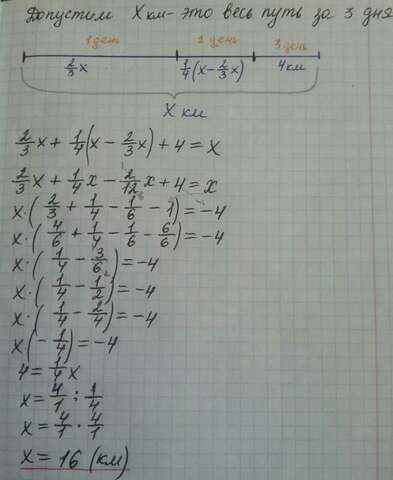 Допустим X км - это весь путь за 3 дня
1 день 2 день 3 день
2/3x 1/4(x - 2/3x) 4км
X км
2/3x + 1/4(x - 2/3x) + 4 = x
2/3x + 1/4x - 2/12x + 4 = x
x·(2/3 + 1/4 - 1/6 - 1) = -4
x·(4/6 + 1/4 - 1/6 - 6/6) = -4
x·(1/4 - 3/6) = -4
x·(1/4 - 1/2) = -4
x·(1/4 - 2/4) = -4
x(-1/4) = -4
4 = 1/4x
x = 4/1 : 1/4
x = 4/1 · 4/1
x = 16 (км)